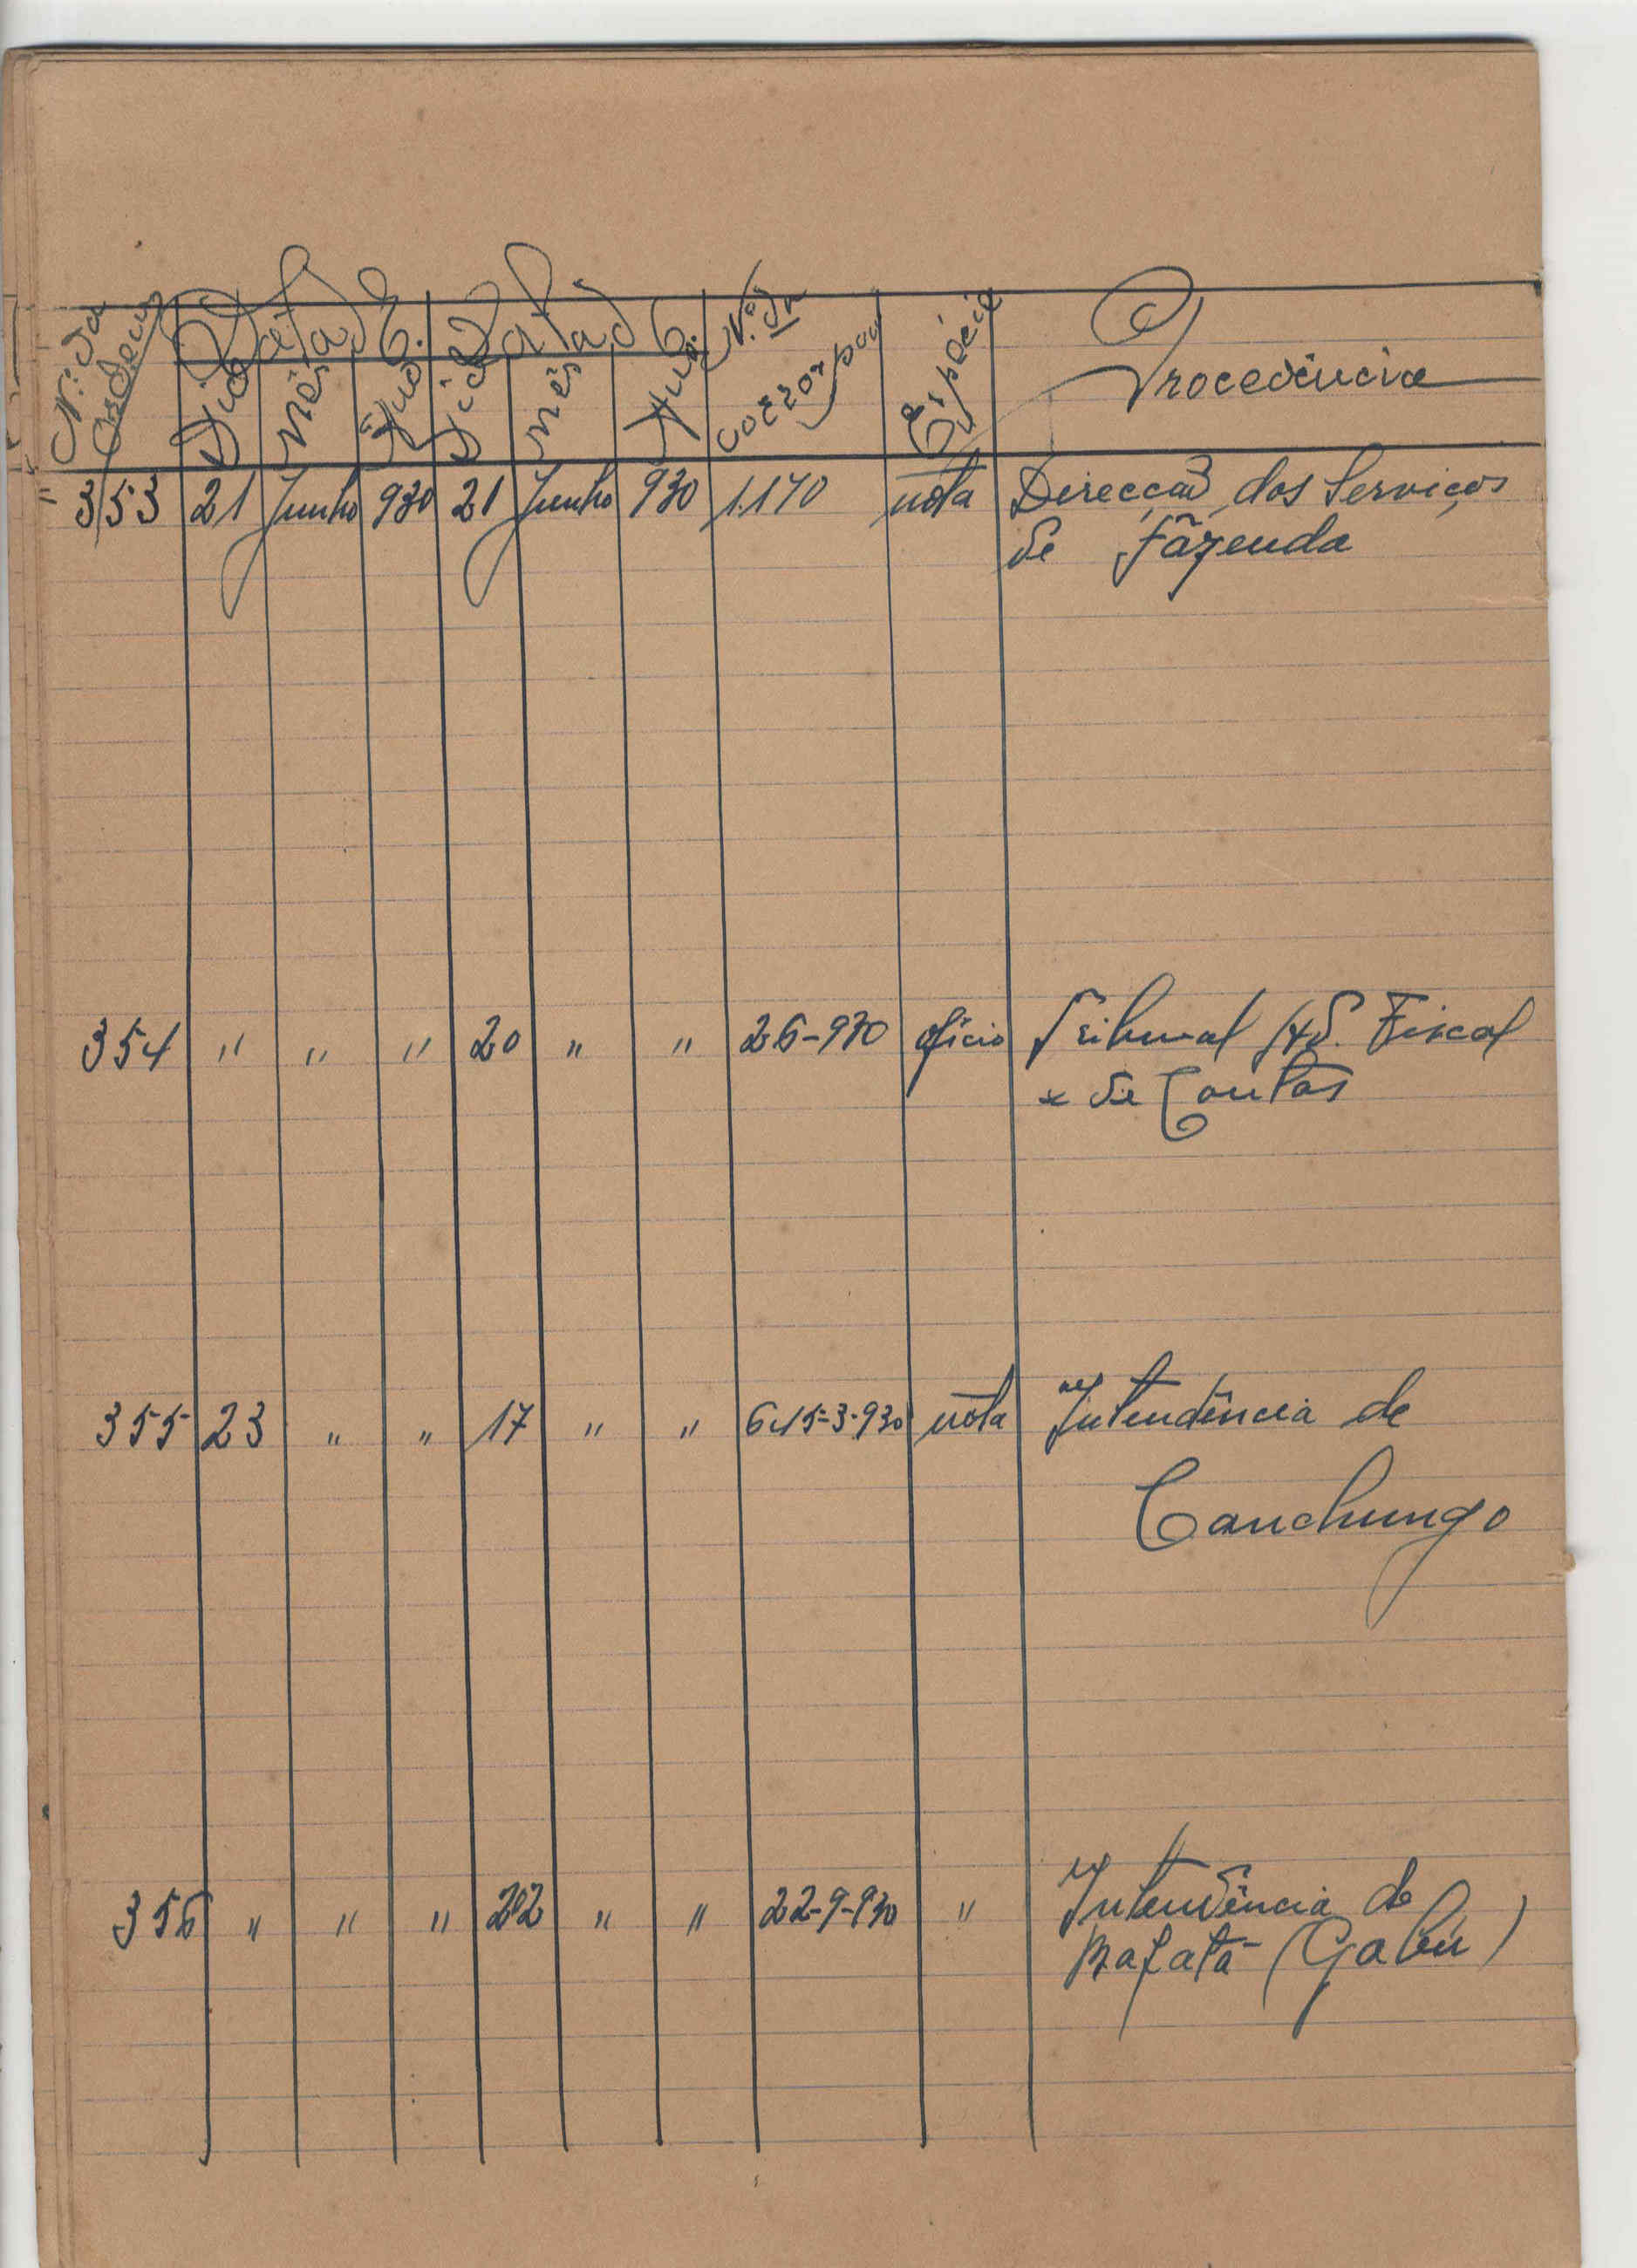 N.º da Ordem Data da E. Data da C. N.º da corresp. Espécie Procedência
Dia Mês Ano Dia Mês Ano
353 21 Junho 930 21 Junho 930 1.170 nota Direcção dos Serviços
de Fazenda
354 " " " 20 " " 26-930 ofício Tribunal Ad. Fiscal
e de Contas
355 23 " " 17 " " 615-3-930 nota Intendência de
Canchungo
356 " " " 22 " " 22-9-930 " Intendência de
Bafatá (Gabú)